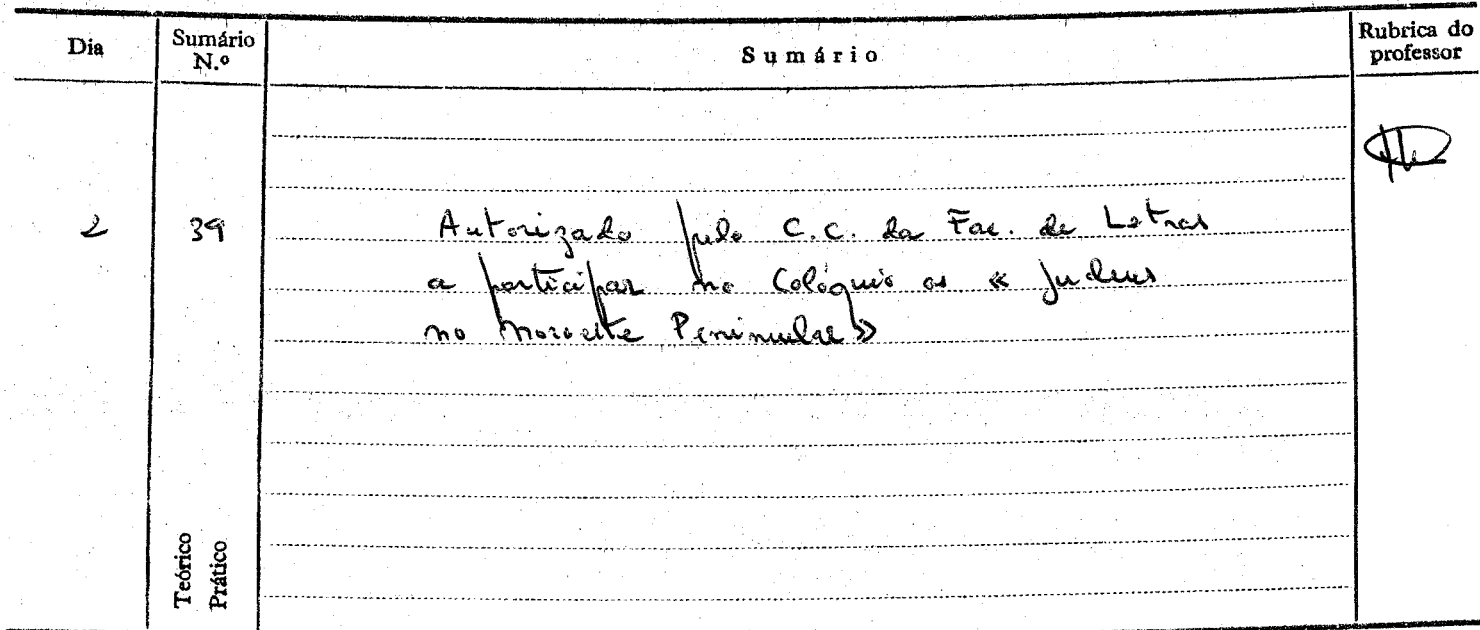 Dia
Sumário N.º
Sumário
Rubrica do professor
2
39
Autorizado pelo C.C. da Fac. de Letras
a participar no Colóquio os « Judeus
no Noroeste Peninsular »
Teórico
Prático